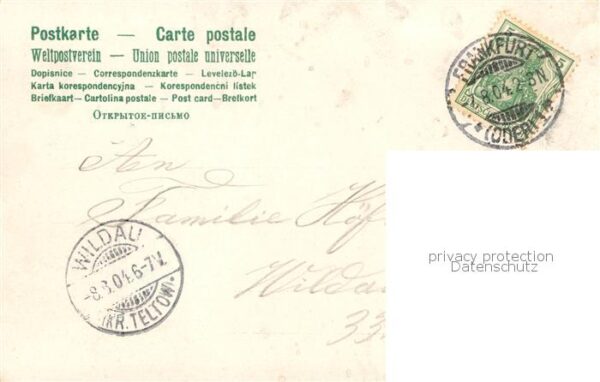 Postkarte — Carte postale
Weltpostverein — Union postale universelle
Dopisnice — Correspondenzkarte — Levelező-Lap
Karta korespondencyjna — Korespondencni listek
Briefkaart — Cartolina postale — Post card — Brefkort
Открытое-письмо
FRANKFURT
8.04.2-3N
(ODER) 1
5
An
Familie Höf
Wildau
33
WILDAU
-8.3.04.6-7V.
(KR. TELTOW)
privacy protection
Datenschutz